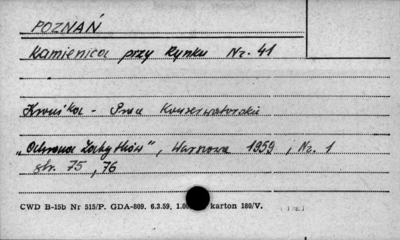 POZNAŃ
Kamienica przy Rynku Nr. 41
Kronika - Prac Konserwatorskich
„Ochrona Zabytków", Warszawa 1959, Nr. 1
str. 75, 76
CWD B-15b Nr 515/P. GDA-809. 6.3.59. 1.00 karton 180/V.